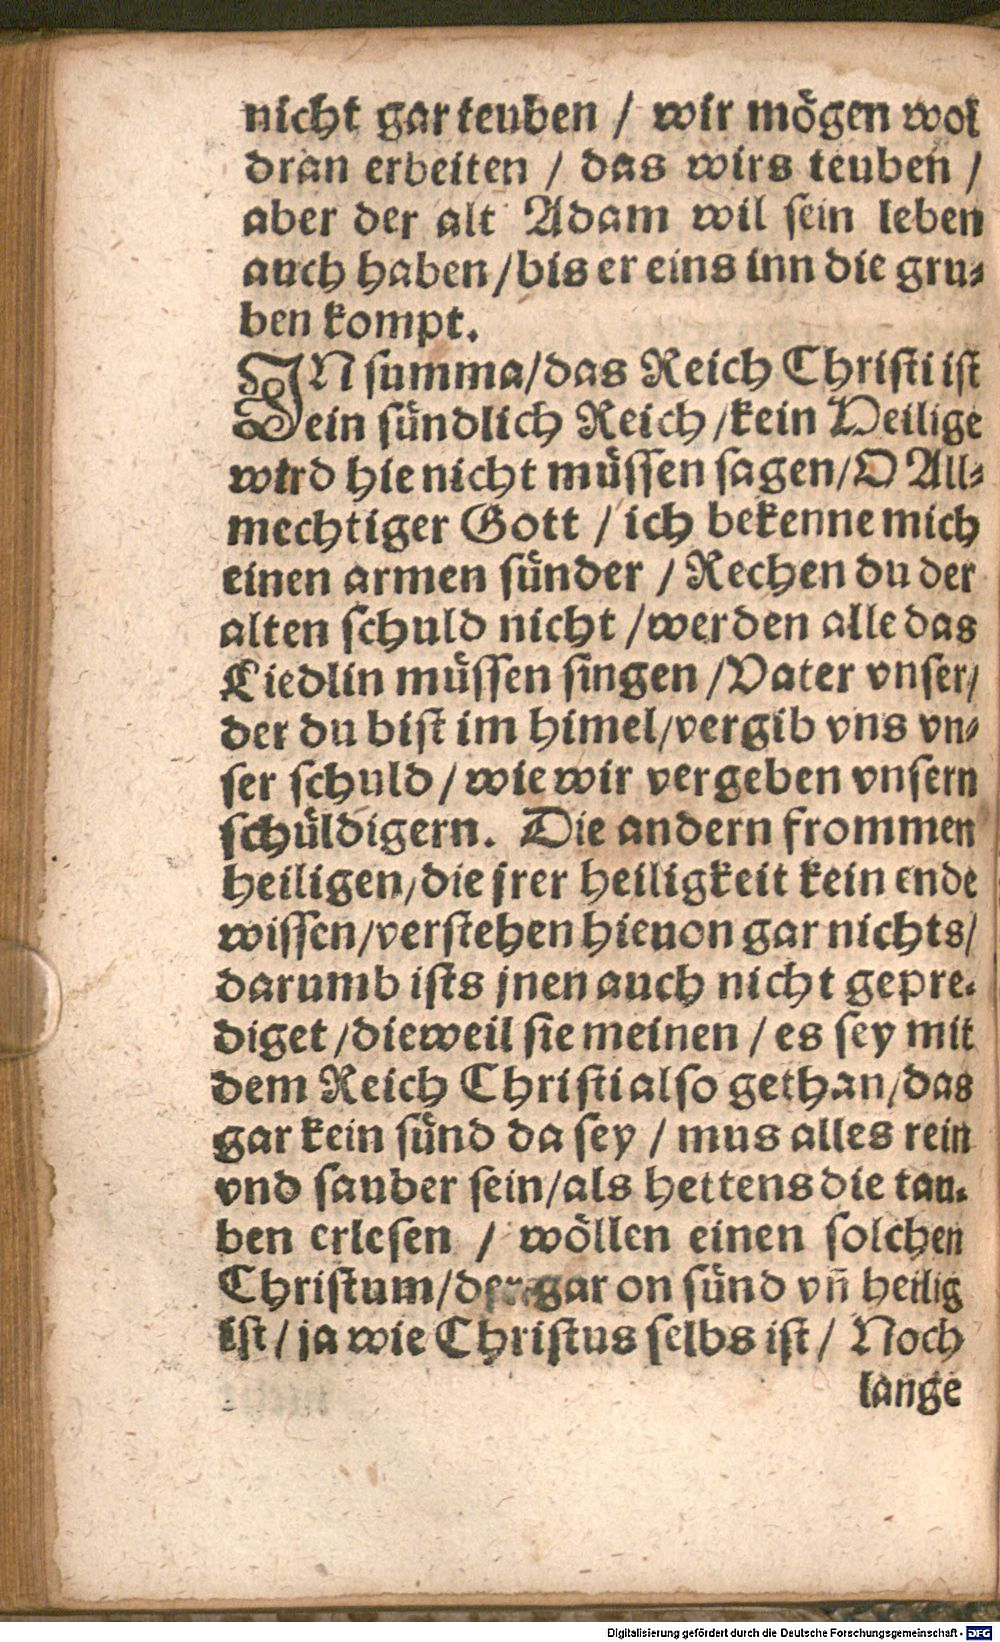 nicht gar teuben / wir mögen wol
dran erbeiten / das wirs teuben /
aber der alt Adam wil sein leben
auch haben / bis er eins inn die gru⸗
ben kompt.
IN summa / das Reich Christi ist
ein sündlich Reich / kein Heilige
wird hie nicht müssen sagen / O All⸗
mechtiger Gott / ich bekenne mich
einen armen sünder / Rechen du der
alten schuld nicht / werden alle das
Liedlin müssen singen / Vater vnser /
der du bist im himel / vergib vns vn⸗
ser schuld / wie wir vergeben vnsern
schüldigern. Die andern frommen
heiligen / die jrer heiligkeit kein ende
wissen / verstehen hieuon gar nichts /
darumb ists jnen auch nicht gepre⸗
diget / dieweil sie meinen / es sey mit
dem Reich Christi also gethan / das
gar kein sünd da sey / mus alles rein
vnd sauber sein / als hettens die tau⸗
ben erlesen / wöllen einen solchen
Christum / der gar on sünd vñ heilig
ist / ja wie Christus selbs ist / Noch
lange
Digitalisierung gefördert durch die Deutsche Forschungsgemeinschaft - DFG